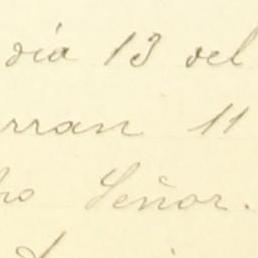 dia 13 del
rran 11
ho Señor.